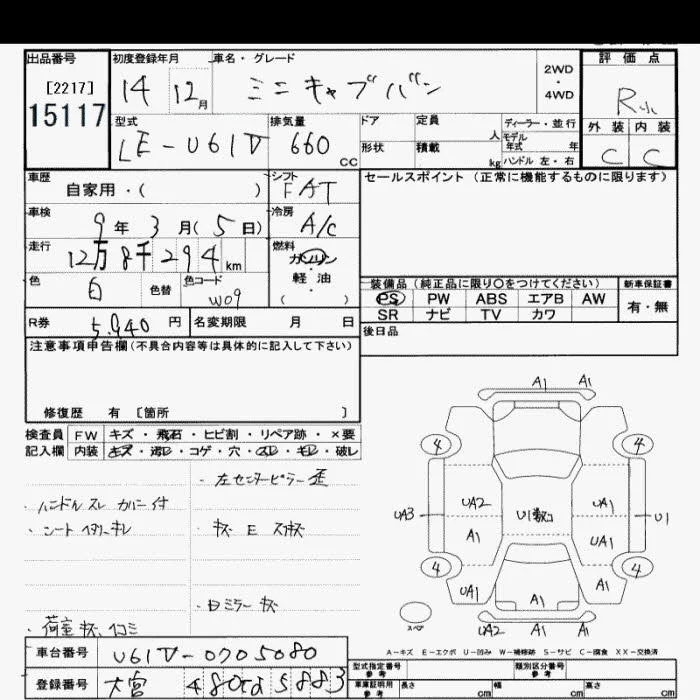 出品番号 初度登録年月 車名・グレード 評価点
[2217] 14 12月 ミニキャブバン 2WD・4WD R
15117 外装 内装
型式 排気量 ドア 定員 人 ディーラー・並行 C C
LE-U61V 660 CC 形状 積載 kg モデル年式 年
ハンドル 左・右
車歴 シフト セールスポイント (正常に機能するものに限ります)
自家用・( ) FAT
車検 9年3月(5日) 冷房 A/C
走行 12万8千294km 燃料 ガソリン
軽・油
( )
色 白 色替 色コード W09
装備品 (純正品に限り○をつけてください) 新車保証書
PS PW ABS エアB AW 有・無
SR ナビ TV カワ
R券 5,940 円 名変期限 月 日
後日品
注意事項申告欄(不具合内容等は具体的に記入して下さい)
修復歴 有 〔箇所 〕
検査員 FW キズ・飛石・ヒビ割・リペア跡・×要
記入欄 内装 キズ・汚レ・コゲ・穴・スレ・キレ・破レ
・左センターピラー歪
・ハンドルスレ カバー付
・シート ヘタリ、キレ
・キズ E スホキズ
・Dミラーキズ
・荷室キズ、凹コミ
A1 A1
4 4
UA2 UA1
UA3 U1数コ U1
A1 UA1
4 4
UA1 A1 A1
スペア UA2 A1 A1
A-キズ E-エクボ U-凹み W-補修跡 S-サビ C-腐食 XX-交換済
車台番号 U61V-0705080
登録番号 大宮 480た5883
型式指定番号 参考 類別区分番号 参考
車庫証明用 参考 長さ cm 幅 cm 高さ cm